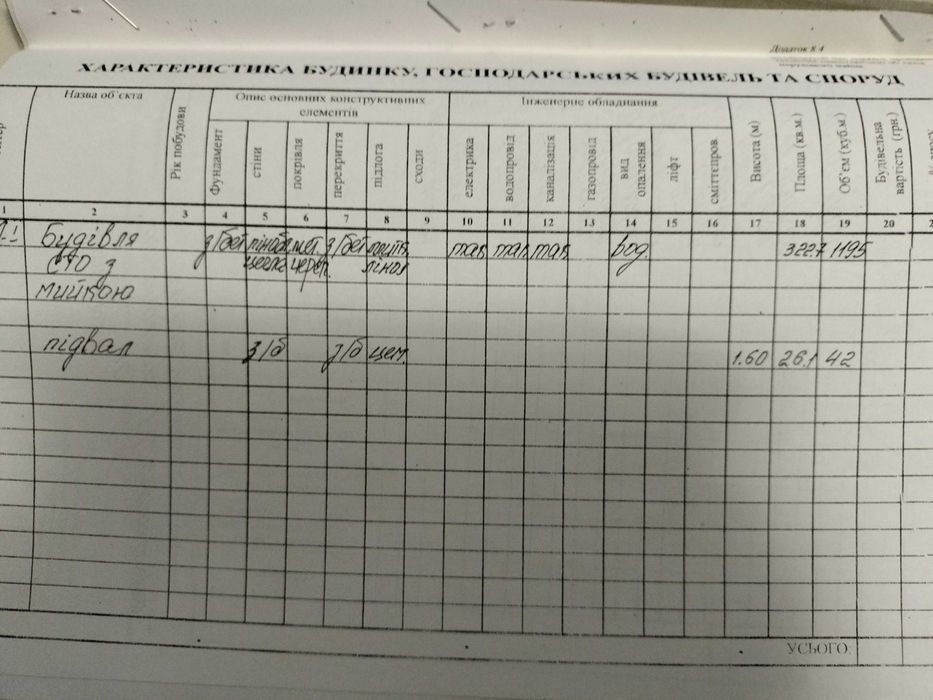 Додаток 8.4
ХАРАКТЕРИСТИКА БУДИНКУ, ГОСПОДАРСЬКИХ БУДІВЕЛЬ ТА СПОРУД
Назва об'єкта
Рік побудови
Опис основних конструктивних
елементів
Інженерне обладнання
Фундамент
стіни
покрівля
перекриття
підлога
сходи
електрика
водопровід
каналізація
газопровід
вид
опалення
ліфт
сміттєпров.
Висота (м)
Площа (кв.м)
Об'єм (куб.м)
Будівельна
вартість (грн.)
1 2 3 4 5 6 7 8 9 10 11 12 13 14 15 16 17 18 19 20
Будівля з/бет піноб. мет. з/бет так так так вод. 322.7 1195
СТО з цегла череп.
мийкою
підвал з/б з/б цем. 1.60 26.1 42
УСЬОГО: